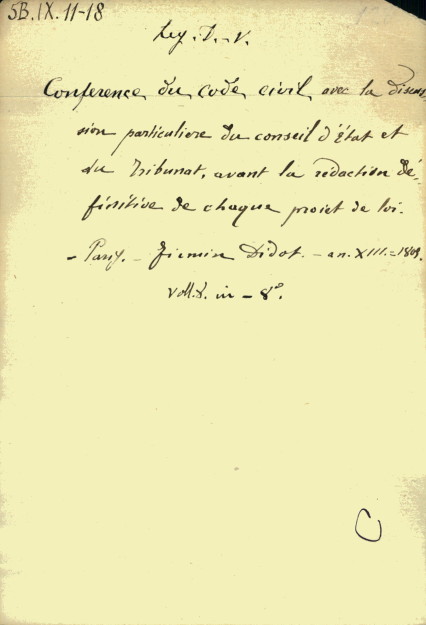 5B.IX.11-18
Leg. D. V.
Conference du code civil avec la discus
sion particuliere du conseil d'État et
du Tribunat, avant la redaction dé-
finitive de chaque projet de loi.
- Paris. - Firmin Didot. - an. XIII. = 1805.
voll. 8. in - 8º.
C